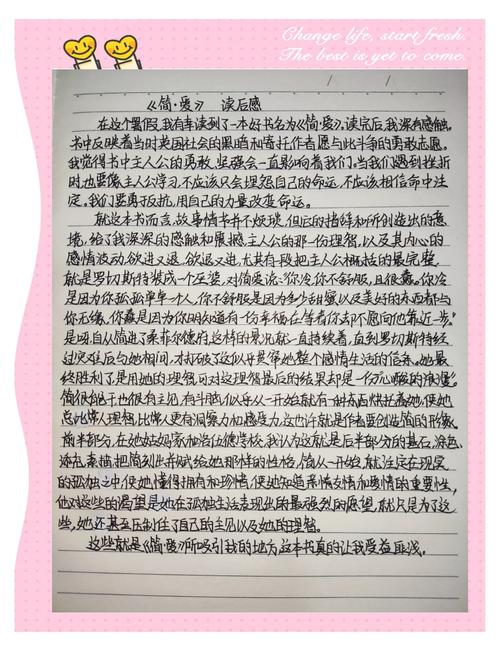 Change life, start fresh.
The best is yet to come.
《简·爱》 读后感
在这个暑假,我有幸读到了一本好书名为《简·爱》,读完后,我深有感触。
书中反映着当时英国社会的黑暗和寄托作者愿与此斗争的勇敢志愿。
我觉得书中主人公的勇敢、坚强会一直影响着我们,当我们遇到挫折
时,也要像主人公学习,不应该只会埋怨自己的命运,不应该相信命中注
定,我们要勇于反抗,用自己的力量改变命运。
就这本书而言,故事情节并不烦琐,但后的描绘和所创造出的意
境,给了我深深的感触和震撼,主人公的那一份理智,以及其内心的
感情波动,欲进又退,欲退又进,尤其有一段把主人公概括的最完整,
就是罗切斯特装成一个巫婆,对简爱说:“你冷,你不舒服,且很蠢。你冷
是因为你孤孤单单一个人,你不舒服是因为缺少甜蜜以及美好的东西都与
你无缘,你蠢是因为你明知道有一份幸福在等着你却不愿向他靠近一步。”
是的,自从简进了桑菲尔德府,这样的景况就一直持续着,直到罗切斯特经
过灾难后与她相同,才打破了这似乎贯穿她整个感情生活的信条。她最
终胜利了,是用她的理智,可对这理智最后的结果却是一份沉酸的
简很能干也很有主见,有头脑,似乎从一开始就有一种东西烘托着她,使她
总比常人理智,比常人更有洞察力和感受力,这也许就是作者要创造简的形象,
前半部分,在她姑妈家和洛伍德学校,我认为这就是后半部分的基石,涂色,
添充,素描,把简刻出并赋给她那样的性格,简从一开始就注定在现实
的孤独之中,使她懂得拥有和珍惜,使她知道亲情友情和爱情的重要性,
他对这些的渴望是她在孤独生活表现出的最强烈的愿望,就只是为了这
些,她还甚至压制住了自己的主见以及她的理智。
这些就是《简·爱》所吸引我的地方,这本书真的让我受益匪浅。